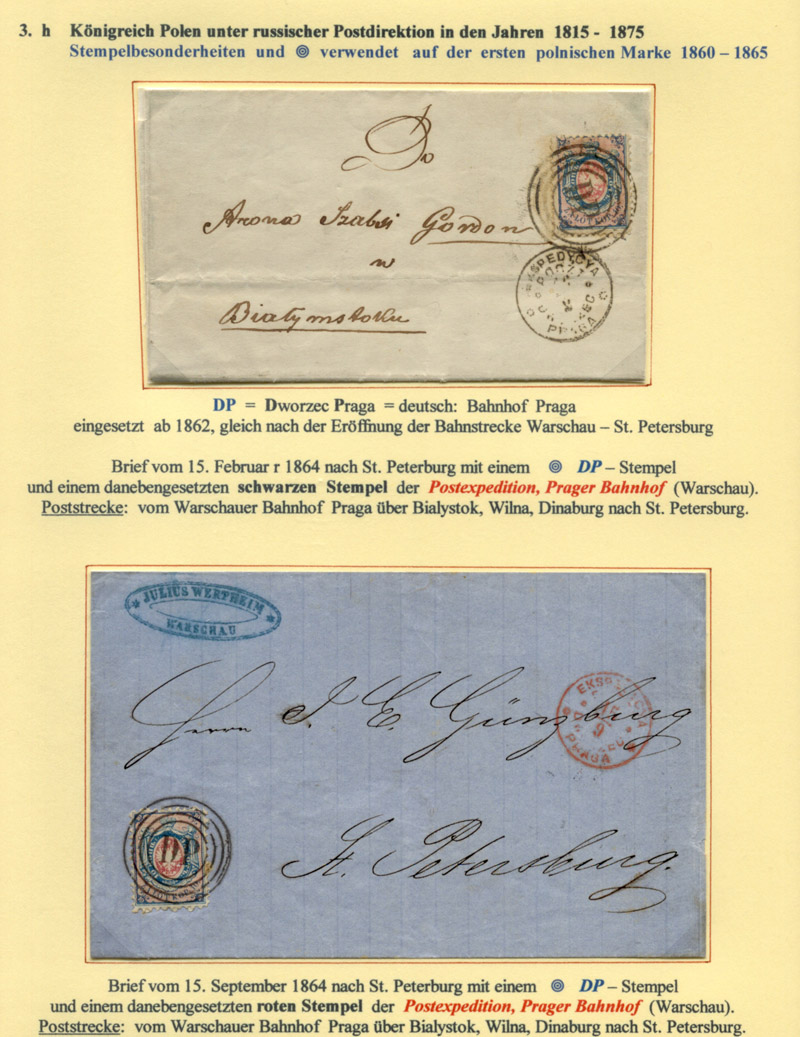 3. h Königreich Polen unter russischer Postdirektion in den Jahren 1815 - 1875
Stempelbesonderheiten und verwendet auf der ersten polnischen Marke 1860 – 1865
Do
Arona Szabsi Gordon
w
Białymstoku
EKSPEDYCYA
POCZT
PRAGA
DP = Dworzec Praga = deutsch: Bahnhof Praga
eingesetzt ab 1862, gleich nach der Eröffnung der Bahnstrecke Warschau – St. Petersburg
Brief vom 15. Februar r 1864 nach St. Peterburg mit einem DP – Stempel
und einem danebengesetzten schwarzen Stempel der Postexpedition, Prager Bahnhof (Warschau).
Poststrecke: vom Warschauer Bahnhof Praga über Bialystok, Wilna, Dinaburg nach St. Petersburg.
JULIUS WERTHEIM
WARSCHAU
Herrn J. E. Günzburg
PRAGA
DP
St. Petersburg.
Brief vom 15. September 1864 nach St. Peterburg mit einem DP – Stempel
und einem danebengesetzten roten Stempel der Postexpedition, Prager Bahnhof (Warschau).
Poststrecke: vom Warschauer Bahnhof Praga über Bialystok, Wilna, Dinaburg nach St. Petersburg.